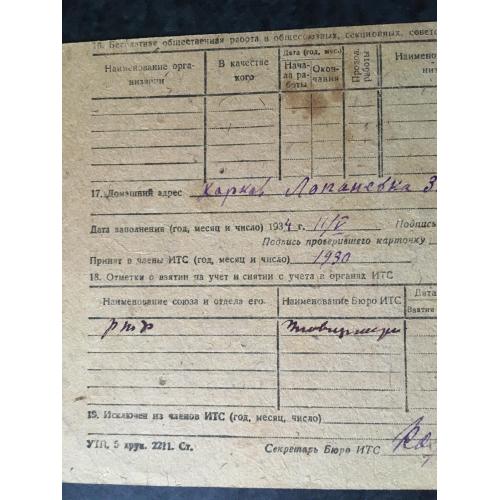 16. Бесплатная общественная работа в общесоюзных, секционных, совет
Наименование орга-
низации
В качестве
кого
Дата (год, мес.)
Нача-
ла ра-
боты
Окон-
чания
Продол.
работы
Наимено
низ
17. Домашний адрес Харков Лопаневка 3
Дата заполнения (год, месяц и число) 1934 г. 11/V Подпись
Подпись проверившего карточку
Принят в члены ИТС (год, месяц и число) 1930
18. Отметки о взятии на учет и снятии с учета в органах ИТС
Наименование союза и отдела его
Наименование Бюро ИТС
Дата
Взятия
19. Исключен из членов ИТС (год, месяц, число)
УТП, 5 друк. 2211. Ст. Секретарь Бюро ИТС